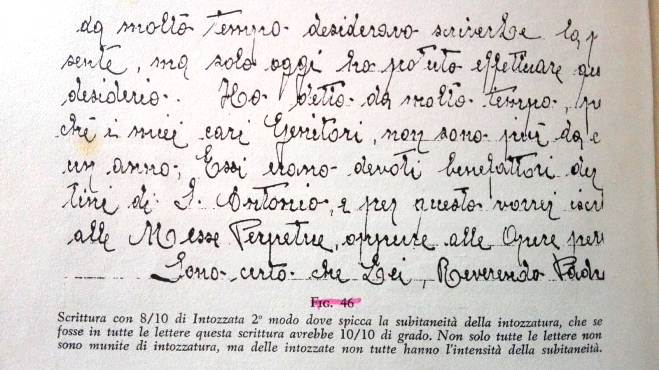 da molto tempo desideravo scriverLe la p
sente, ma solo oggi ho potuto effettuare qu
desiderio. Ho detto da molto tempo, p
chè i miei cari Genitori, non sono più da e
un anno; Essi erano devoti benefattori dei
tini di S. Antonio, e per questo vorrei iscri
alle Messe Perpetue, oppure alle Opere per
Sono certo che Lei, Reverendo Padr
FIG. 46
Scrittura con 8/10 di Intozzata 2º modo dove spicca la subitaneità della intozzatura, che se
fosse in tutte le lettere questa scrittura avrebbe 10/10 di grado. Non solo tutte le lettere non
sono munite di intozzatura, ma delle intozzate non tutte hanno l'intensità della subitaneità.